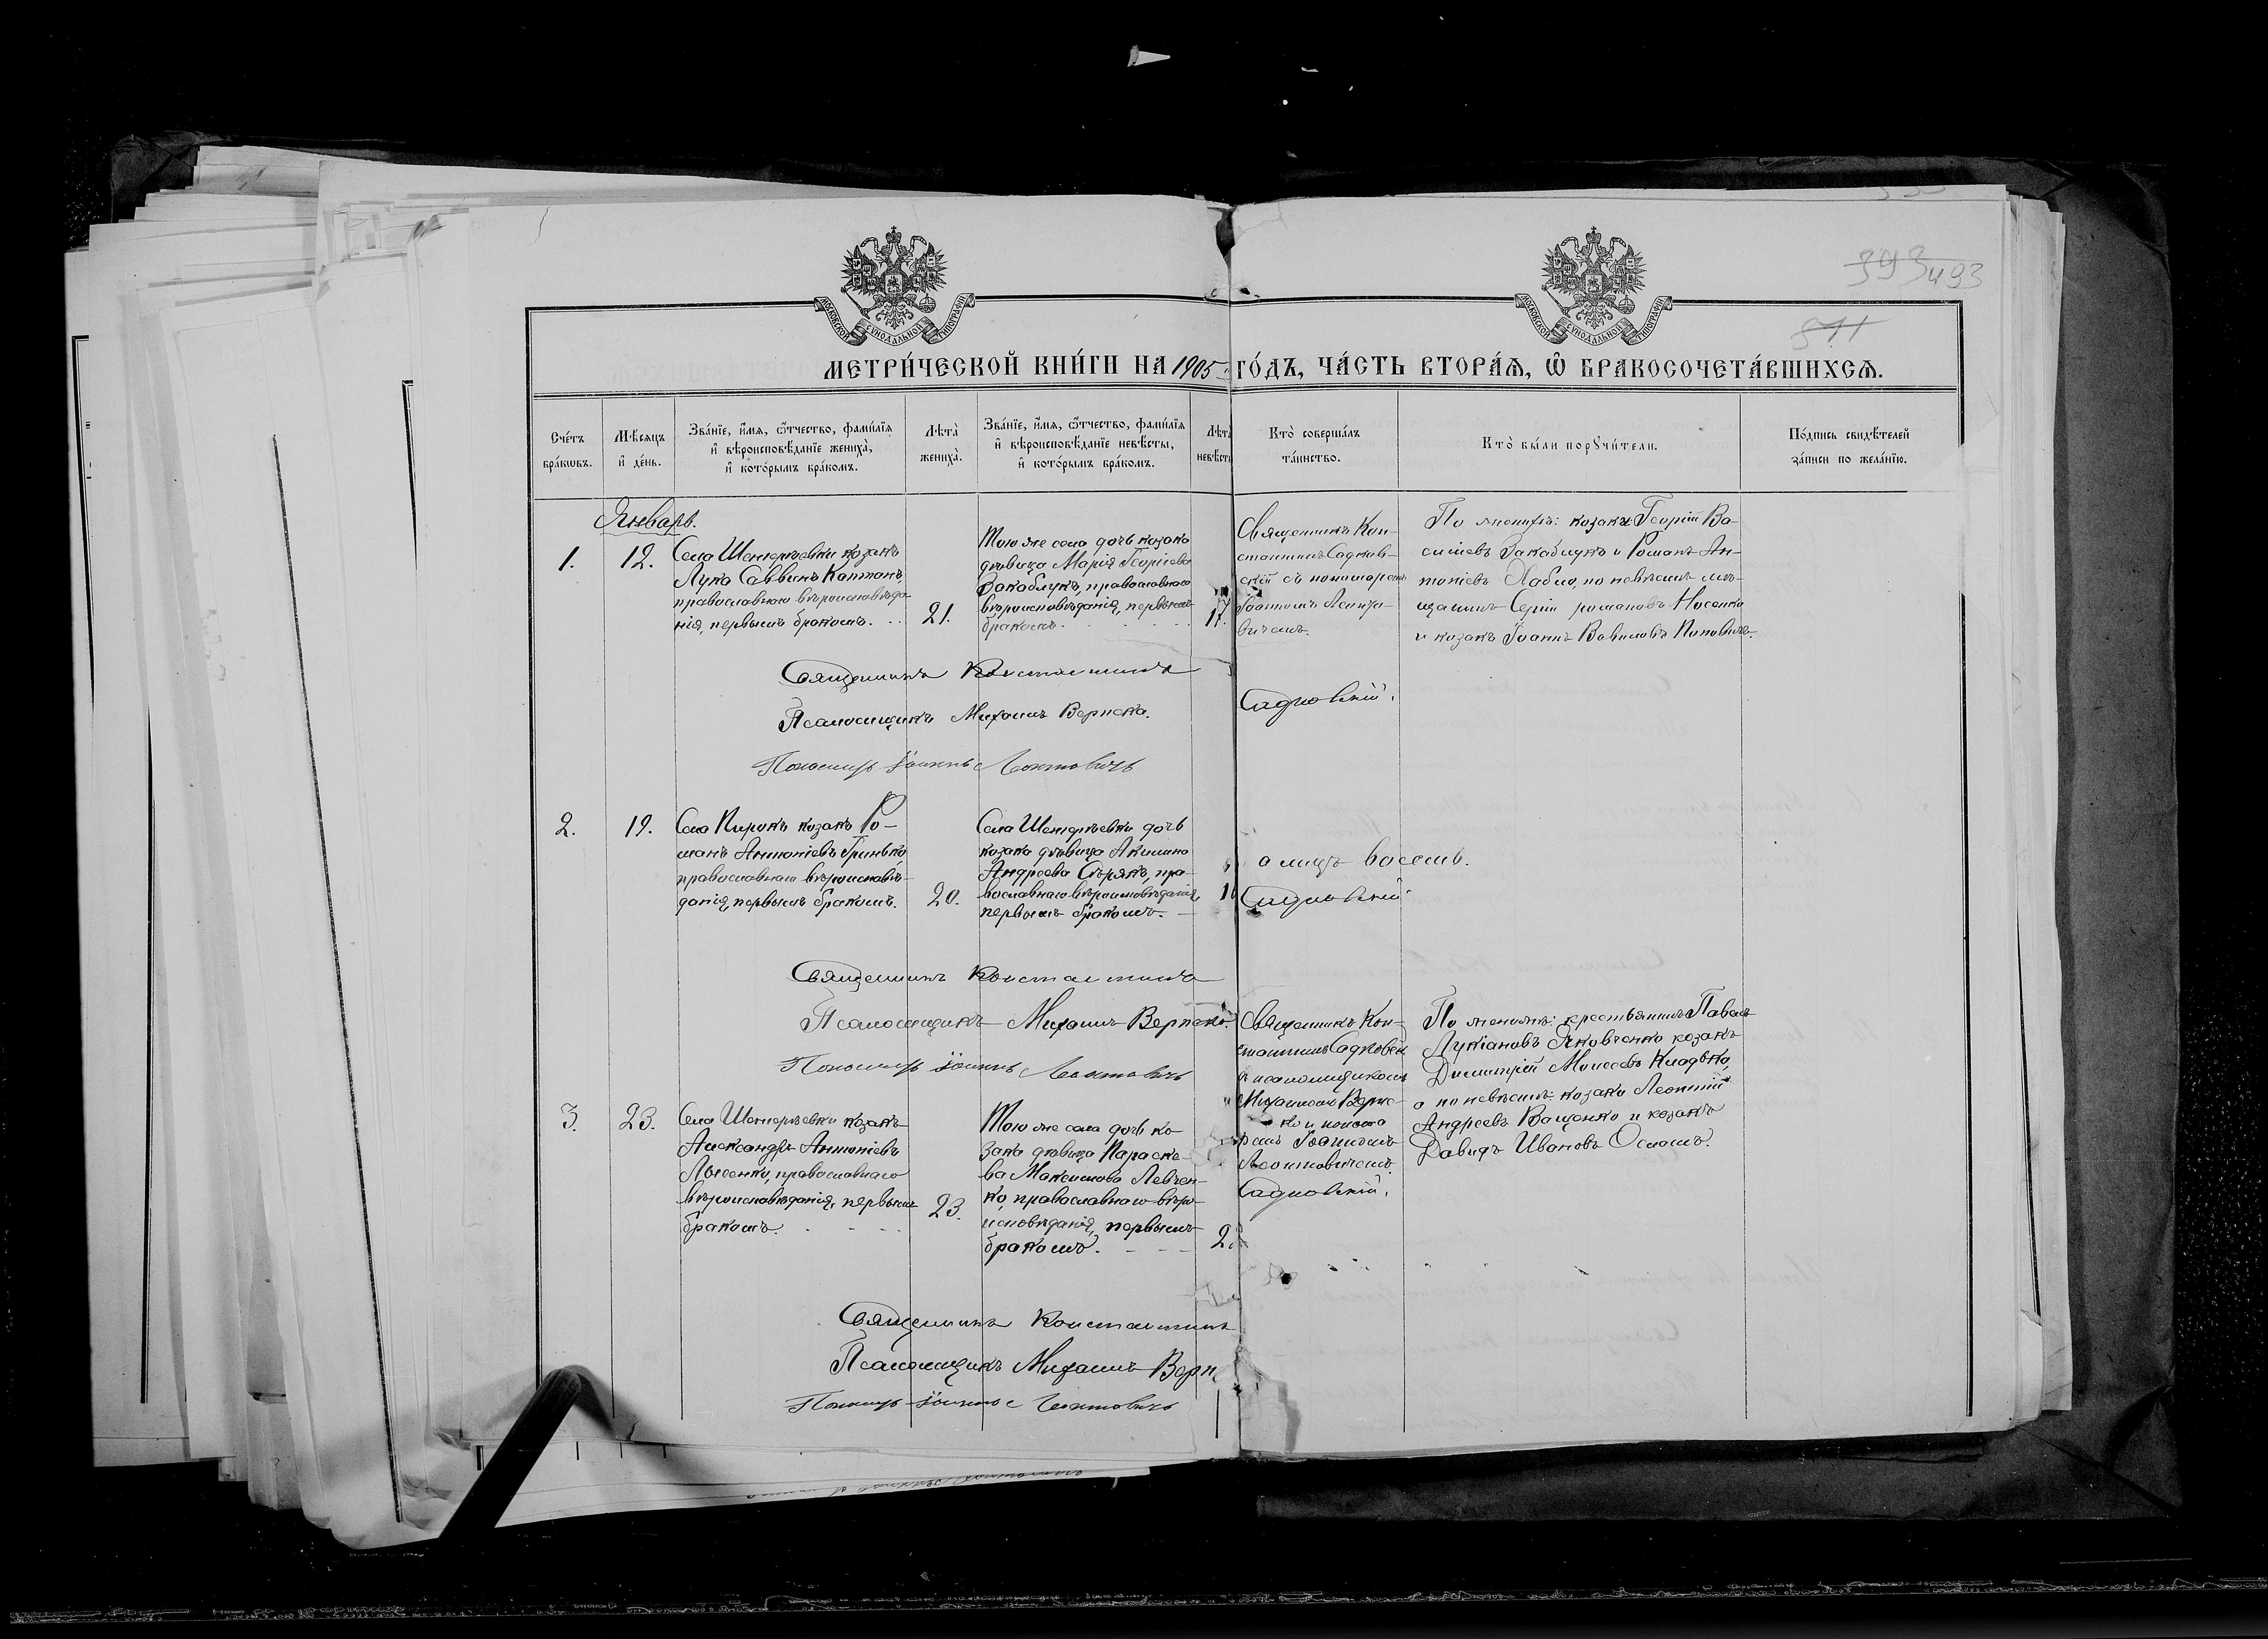 393 493
511
МОСКОВСКОЙ СѴНОДАЛЬНОЙ ТИПОГРАФІИ
МОСКОВСКОЙ СѴНОДАЛЬНОЙ ТИПОГРАФІИ
МЕТРИ́ЧЕСКОЙ КНИ́ГИ НА 1905 ГО́ДЪ, ЧА́СТЬ ВТОРА́Ѧ, Ѽ БРАКОСОЧЕТА́ВШИХСѦ.
Сче́тъ бра́кѡвъ.
Мѣ́сяцъ и҆ де́нь.
Зва́нїе, и҆́мя, ѻ҆́тчество, фами́лїя
и҆ вѣроисповѣ́данїе жениха̀,
и҆ кото́рымъ бра́комъ.
Лѣта̀ жениха̀.
Зва́нїе, и҆́мя, ѻ҆́тчество, фами́лїя
и҆ вѣроисповѣ́данїе невѣ́сты,
и҆ кото́рымъ бра́комъ.
Лѣта̀ невѣ́сты
Кто̀ соверша́лъ
та́инство.
Кто̀ бы́ли порꙋчи́тели.
По́дпись свидѣ́телей
за́писи по жела́нїю.
Январь.
1.
12.
Села Шендріевки козакъ
Лука Саввинъ Каптанъ,
православнаго вѣроисповѣда-
нія, первымъ бракомъ.
21.
Того же села дочь козака
дѣвица Марія Георгіева
Закаблукъ, православнаго
вѣроисповѣданія, первымъ
бракомъ.
17.
Священникъ Кон-
стантинъ Садков-
скій съ пономаремъ
Іоанномъ Леонто-
вичемъ.
По женихѣ: козаки Георгій Ва-
сильевъ Закаблукъ и Романъ Ан-
тоніевъ Хабло, по невѣстѣ мѣ-
щанинъ Сергій Романовъ Носенко
и козакъ Іоаннъ Вавиловъ Поповичъ.
Священникъ Константинъ
Садковскій.
Псаломщикъ Михаилъ Верпека.
Пономарь Іоаннъ Леонтовичъ
2.
19.
Села Пирокъ козакъ Ро-
манъ Антоніевъ Гринько
православнаго вѣроисповѣ-
данія, первымъ бракомъ.
20.
Села Шендріевки дочь
козака дѣвица Акилина
Андреева Сѣрякъ, пра-
вославнаго вѣроисповѣданія,
первымъ бракомъ.
Садковскій
Священникъ Константинъ
Псаломщикъ Михаилъ Верпека.
Пономарь Іоаннъ Леонтовичъ
3.
23.
Села Шендріевки козакъ
Александръ Антоніевъ
Лысенко, православнаго
вѣроисповѣданія, первымъ
бракомъ.
23.
Того же села дочь ко-
зака дѣвица Параске-
ва Максимова Левчен-
ко, православнаго вѣро-
исповѣданія, первымъ
бракомъ.
Священникъ Кон-
стантинъ Садковскій
съ псаломщикомъ
Михаиломъ Верпе-
кою и понома
ремъ Іоанномъ
Леонтовичемъ.
По женихѣ: крестьянинъ Павелъ
Лукіановъ Яковченко козакъ
Димитрій Моисеевъ Кладько,
а по невѣстѣ: козаки Леонтій
Андреевъ Ващенко и козакъ
Давидъ Ивановъ Осламъ.
Садковскій.
Священникъ Константинъ
Псаломщикъ Михаилъ Верп
Пономарь Іоаннъ Леонтовичъ